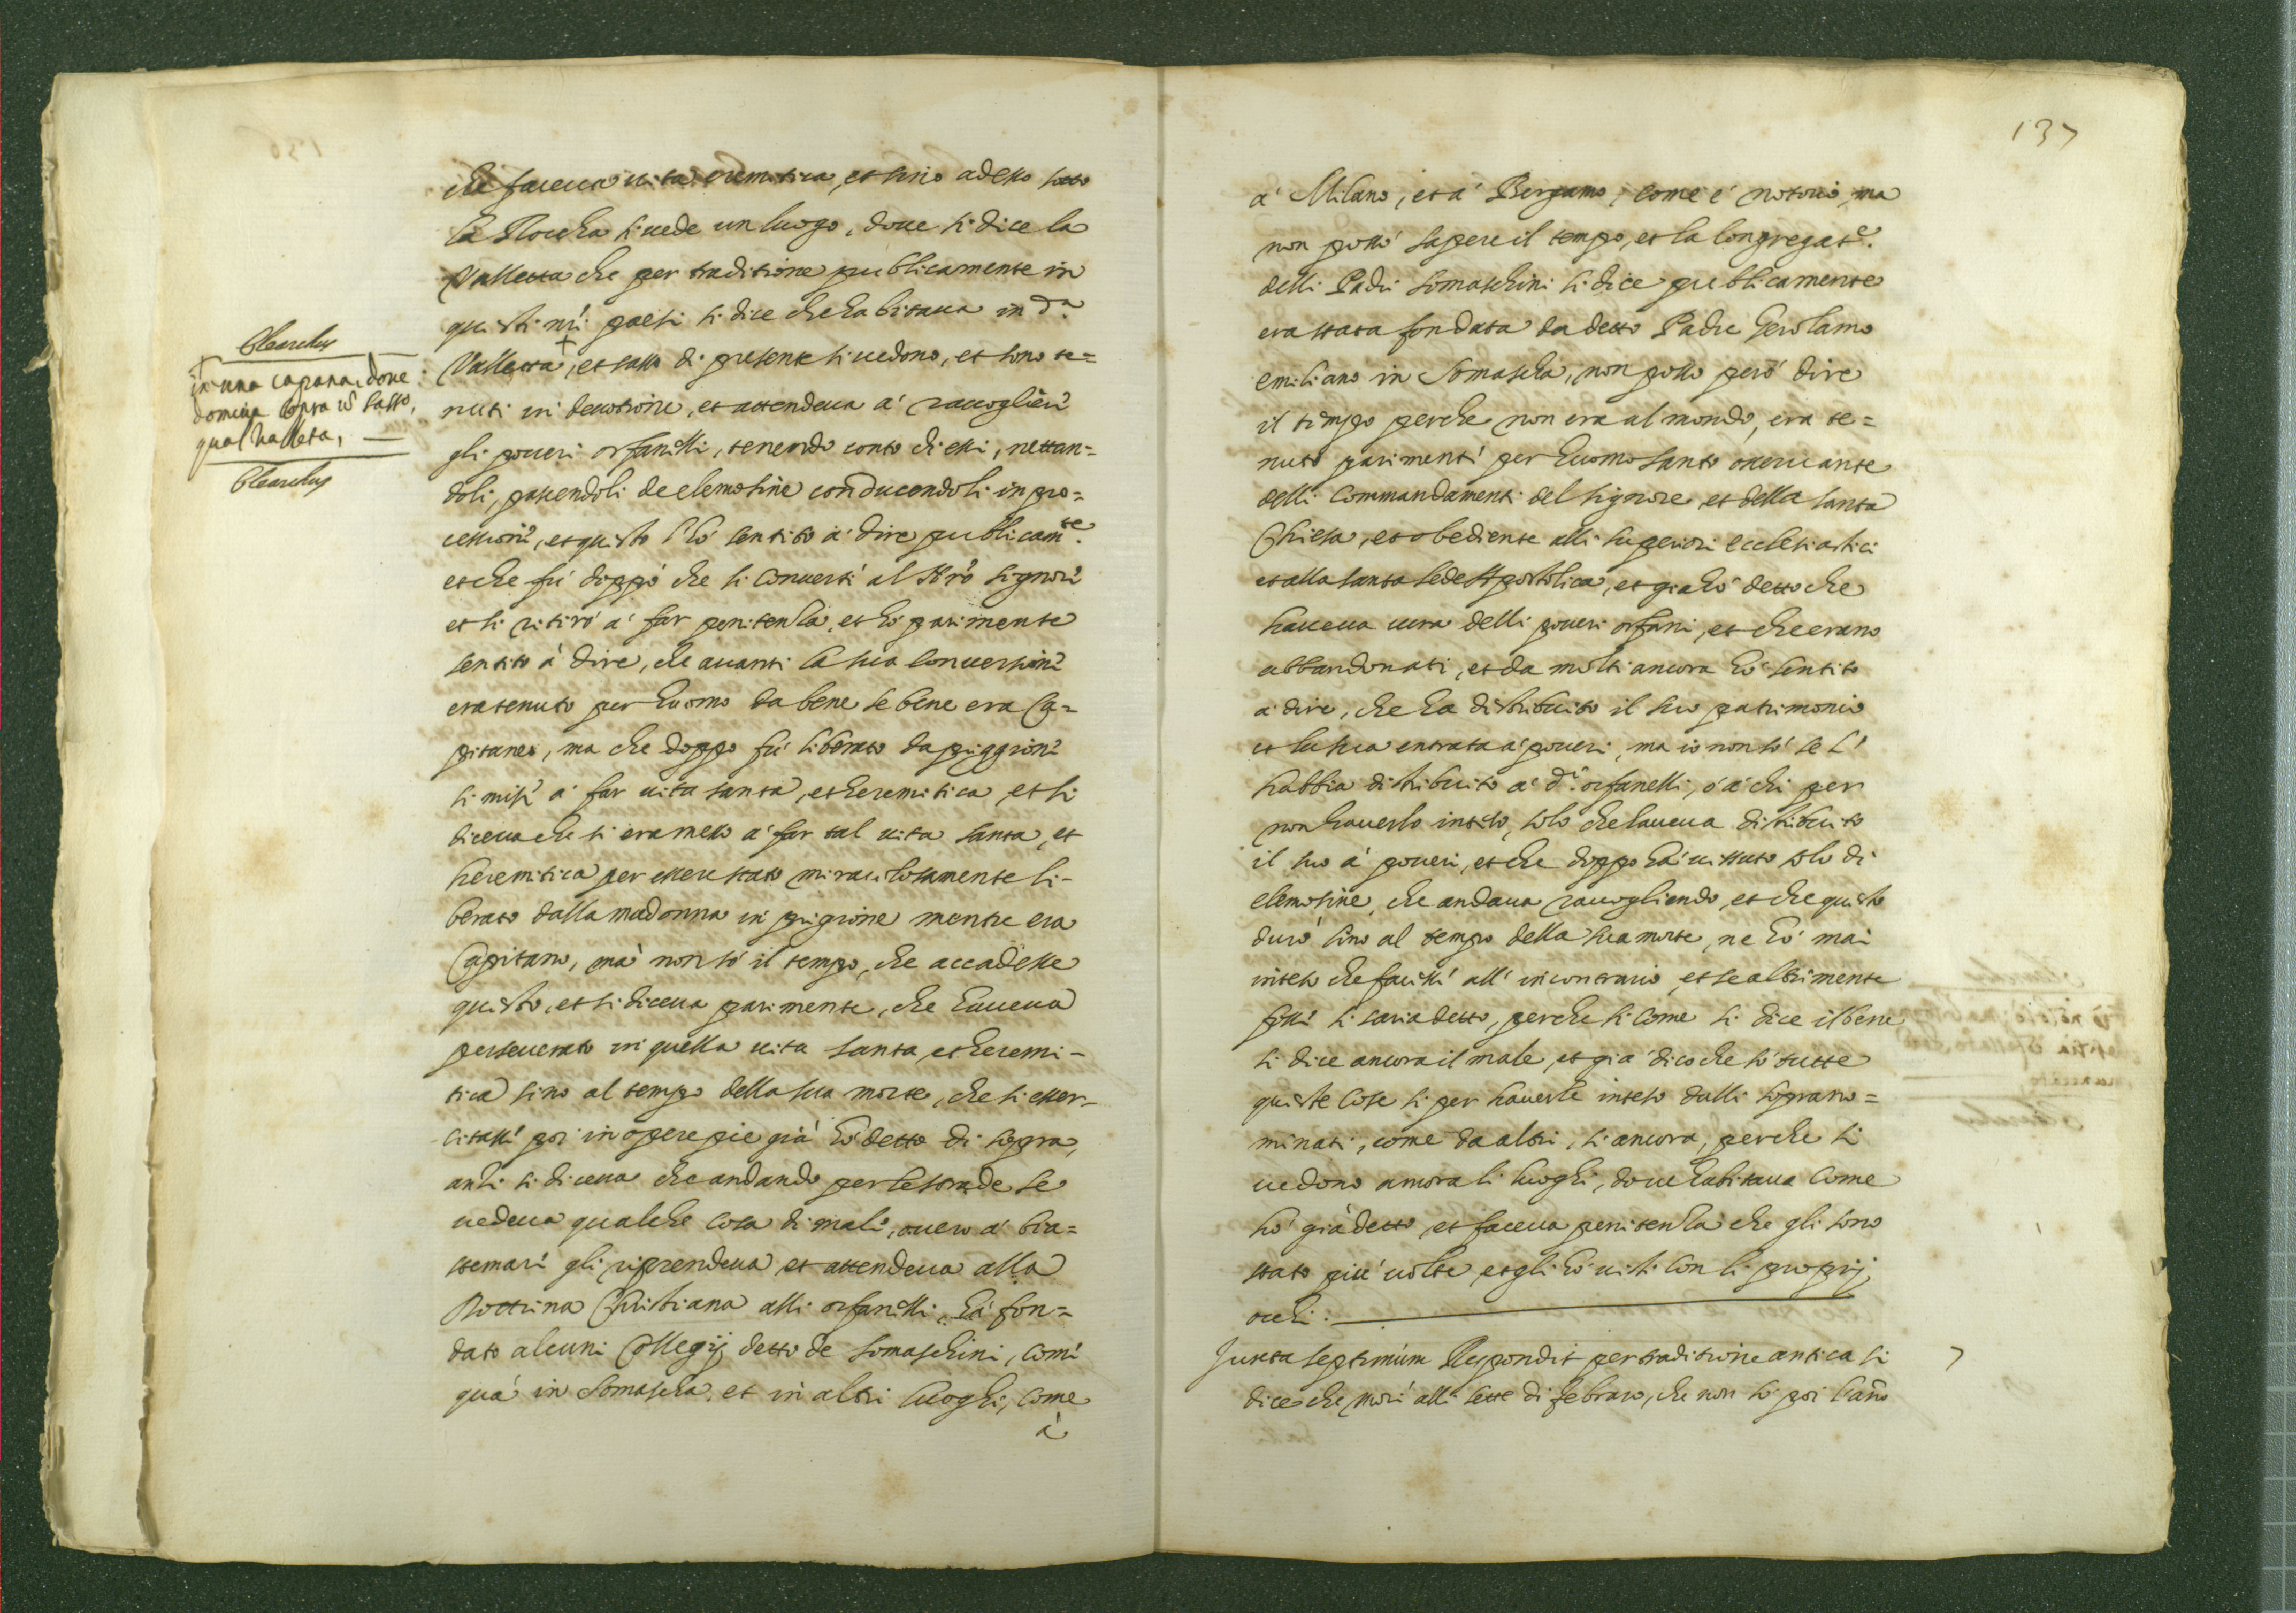 che faceua uita eremitica, et sino adesso sotto
la Roccha si uede un luogo, doue si dice la
Valletta che per traditione publicamente in
questi nri paesi si dice che habitaua in da.
Valletta, et sasso di presente si uedono, et sono te=
nuti in deuotione, et attendeua à raccoglieri
gli poueri orfanelli, tenendo conto di essi, nettan=
doli, pascendoli de elemosine conducendoli in pro=
cessioni, et questo l'hò sentito à dire publicamte.
et che fù doppò che si conuertì al Nro signore
et si ritirò à far penitenza, et hò parimente
sentito à dire, che auanti la sua conuersione
era tenuto per huomo da bene se bene era Ca=
pitaneo, ma che doppo fù liberato da priggioni
si misi à far uita santa, et heremitica, et si
diceua che si era messo à far tal uita santa, et
heremitica per essere stato miracolosamente li-
berato dalla madonna in prigione mentre era
Capitano, mà non sò il tempo, che accadesse
questo, et si diceua parimente, che haueua
perseuerato in quella uita santa, et heremi-
tica sino al tempo della sua morte, che si esser-
citassi poi in opere pie già hò detto di sopra,
anzi si diceua che andando per le strade se
uedeua qualche cosa di mali, ouero à bia=
stemari gli riprendeua et attendeua alla
Dottrina Christiana alli orfanelli, hà fon=
dato alcuni Collegij detto de somaschini, comi
quà in Somascha, et in altri luoghi, come
à
Olearchus
in una capana, doue
domiua sopra un sasso,
qual Valleta,
Olearchus
137
à Milano, et à Bergamo, come è notorio, ma
non possò sapere il tempo, et la Congregate.
delli Padri somaschini si dice publicamente
era stata fondata da detto Padre Gerolamo
emiliano in Somascha, non posso però dire
il tempo perche non era al mondo, era te=
nuto parimenti per huomo santo osseruante
delli Commandamenti del signore, et della santa
Chiesa, et obediente alli superiori ecclesiastici
et alla santa sede Apostolica, et già hò detto che
haueua cura delli poueri orfani, et che erano
abbandonati, et da molti ancora hò sentito
à dire, che ha distribuito il suo patrimonio
et la sua entrata à poueri, ma io non sò se l'
habbia distribuito à di. orfanelli, ò à chi per
non hauerlo inteso, solo che haueua distribuito
il suo à poueri, et che doppo hà uissuto solo di
elemosine, che andaua raccogliendo, et che questo
durò sino al tempo della sua morte, ne hò mai
inteso che facessi all' incontrario, et se altrimente
fossi si saria detto, perche si come si dice il bene
si dice ancora il male, et già dico che sò tutte
queste cose si per hauerle inteso dalli sopranno=
minati, come da altri, si ancora, perche si
uedono ancora li luoghi, doue habitaua come
hò già detto, et faceua penitenza che gli sono
stato più uolte, et gli hò uisti con li proprij
occhi.
Juxta septimum Respondit per traditione antica si
dice che morì alli sette di febraro, che non sò poi l'anno
7